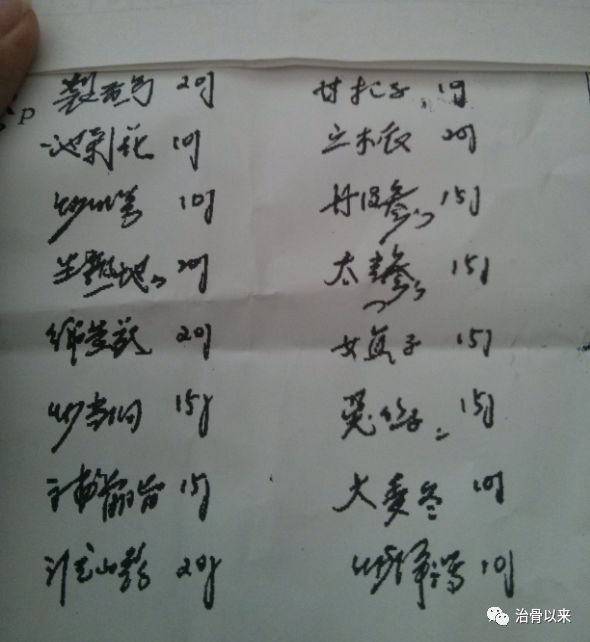 P
製首乌 20g 甘杞子 10g
池菊花 10g 20g
炒川芎 10g 丹皮参 15g
生熟地 20g 太参 15g
绵黄芪 20g 女贞子 15g
炒当归 15g 菟丝子 15g
15g 大麦冬 10g
淮山药 20g 炒泽泻 10g
治骨以来